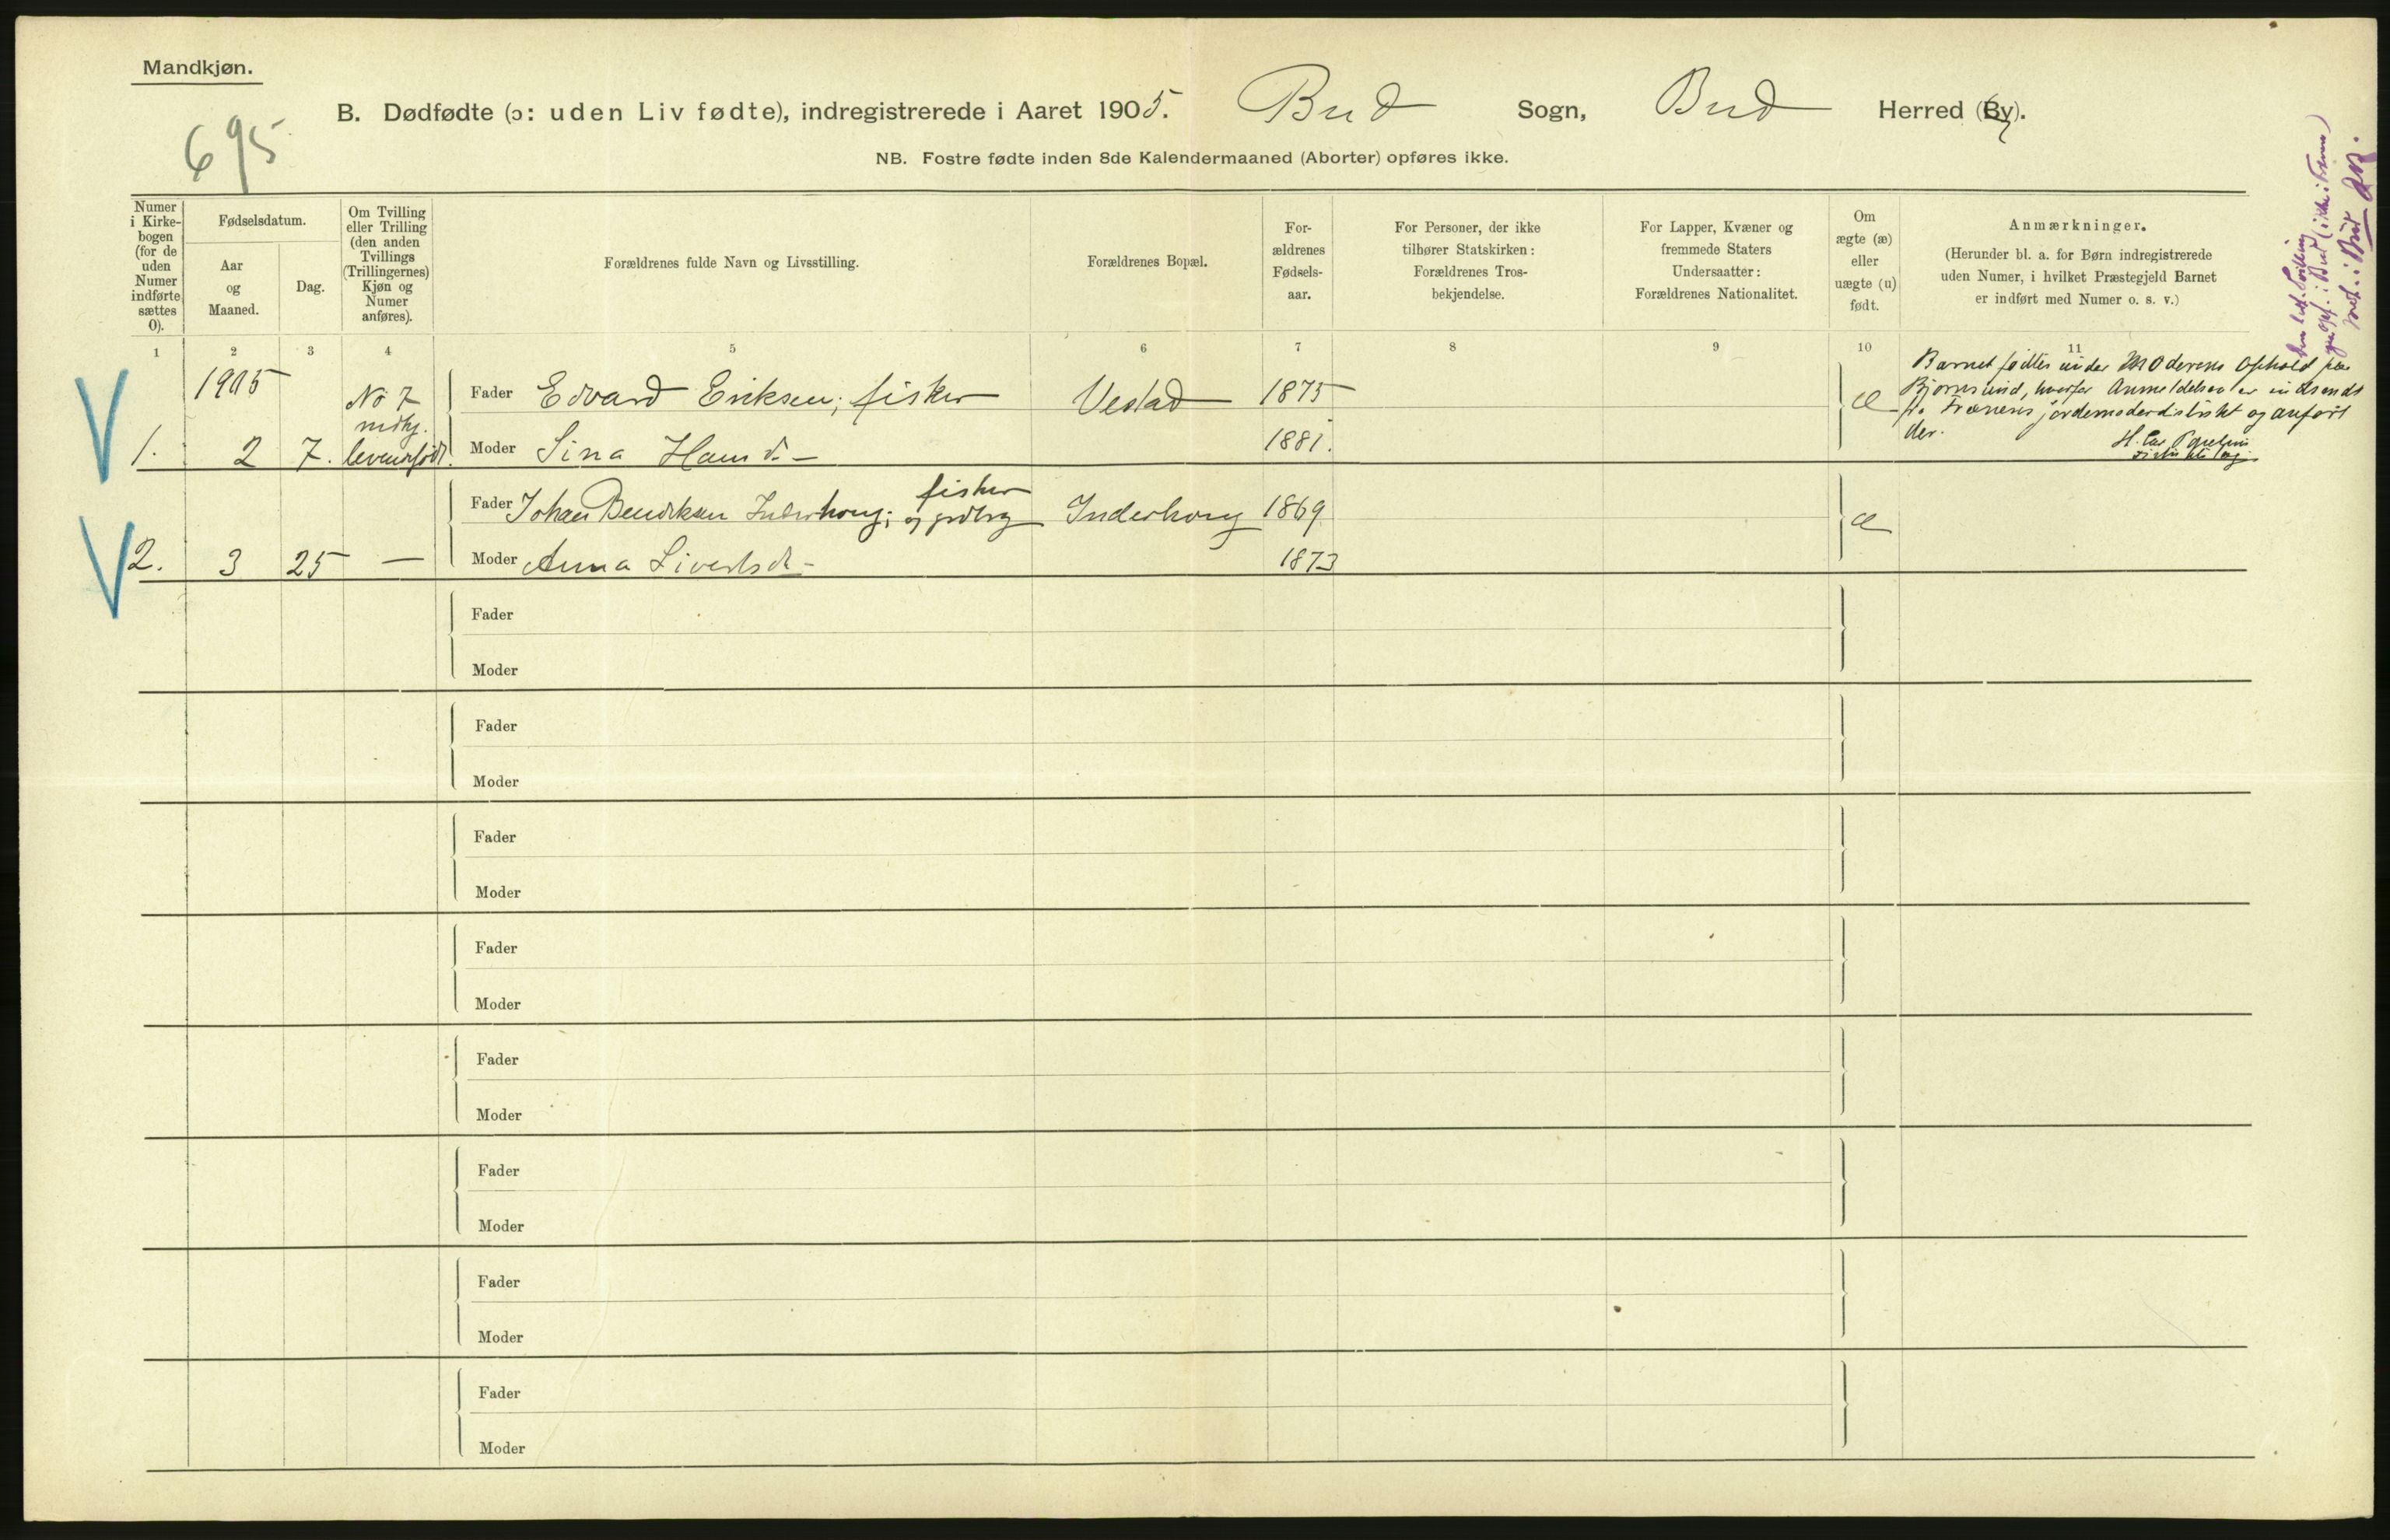 Mandkjøn.
695
B. Dødfødte (ɔ: uden Liv fødte), indregistrerede i Aaret 1905. Bud Sogn, Bud Herred (By).
NB. Fostre fødte inden 8de Kalendermaaned (Aborter) opføres ikke.
Numer
i Kirke-
bogen
(for de
uden
Numer
indførte
sættes
0).
Fødselsdatum.
Aar
og
Maaned.
Dag.
Om Tvilling
eller Trilling
(den anden
Tvillings
(Trillingernes)
Kjøn og
Numer
anføres).
Forældrenes fulde Navn og Livsstilling.
Forældrenes Bopæl.
For-
ældrenes
Fødsels-
aar.
For Personer, der ikke
tilhører Statskirken:
Forældrenes Tros-
bekjendelse.
For Lapper, Kvæner og
fremmede Staters
Undersaatter:
Forældrenes Nationalitet.
Om
ægte (æ)
eller
uægte (u)
født.
Anmærkninger.
(Herunder bl. a. for Børn indregistrerede
uden Numer, i hvilket Præstegjeld Barnet
er indført med Numer o. s. v.)
1 2 3 4 5 6 7 8 9 10 11
1905
No 7
mdkj.
levendefødt.
1. 2 7.
Fader Edvard Eriksen, fisker Vestad 1875 æ
Moder Sina Hansd. 1881.
Barnet fødtes under Moderens Ophold paa
Bjørnsund, hvorfor Anmeldelsen er indsendt
fra Frænens jordemoderdistrikt og anført
der.
fisker
Fader Johan Bendiksen Inderhoug; og grdbrg Inderhoug 1869 æ
2. 3 25 —
Moder Anna Sivertsd. 1873
Fader
Moder
Fader
Moder
Fader
Moder
Fader
Moder
Fader
Moder
Fader
Moder
Fader
Moder
Fader
Moder